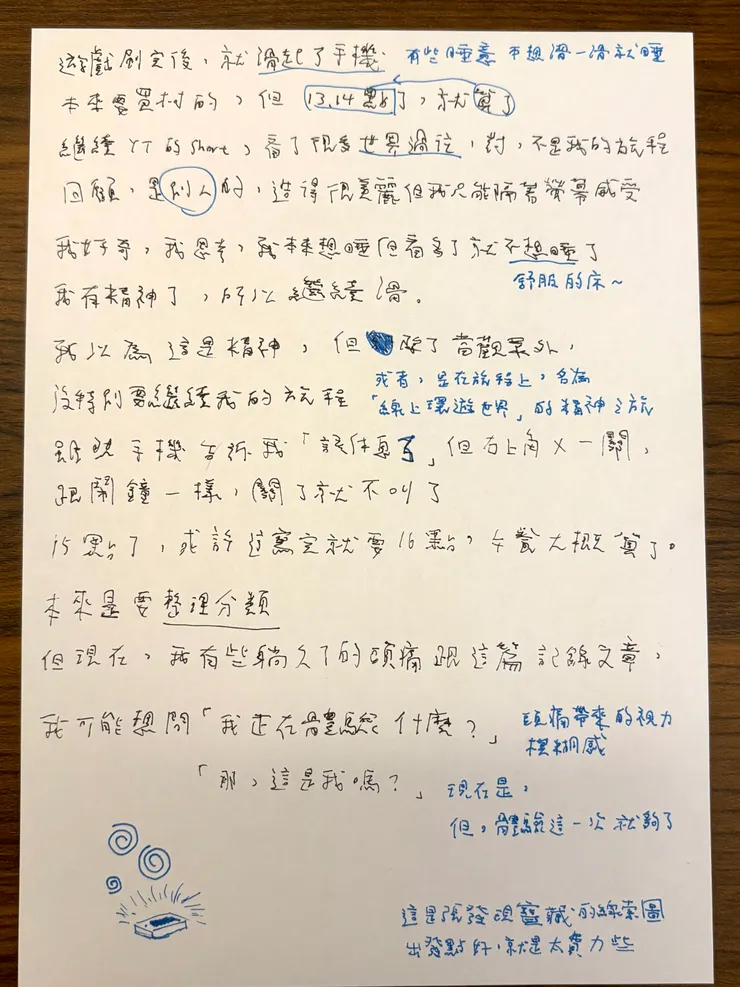 遊戲刷完後，就滑起了手機 有些睡意 不想滑一滑就睡
本來要買村的，但13.14點多了，就算了
繼續 YT 的 short，看了很多世界過往，對，不是我的旅程
回顧，是別人的，造得很美麗但我只能隔著螢幕感受
我好奇，我思考，我本來想睡但看多了就不想睡了
舒服的床～
我有精神了，所以繼續滑。
我以為這是精神，但除了當觀眾外，
沒特別要繼續我的旅程
或者，是在旅程上，名為
「線上環遊世界」的精神之旅
雖然手機告訴我「該休息了」但右上角X一關，
跟鬧鐘一樣，關了就不叫了
15點了，或許這寫完就要16點，午餐大概算了。
本來是要整理分類
但現在，我有些躺久了的頭痛跟這篇記錄文章，
我可能想問「我正在體驗什麼？」
頭痛帶來的視力
模糊感
「那，這是我嗎？」
現在是，
但，體驗這一次就夠了
這是張發現寶藏的線索圖
出發點好，就是太費力些